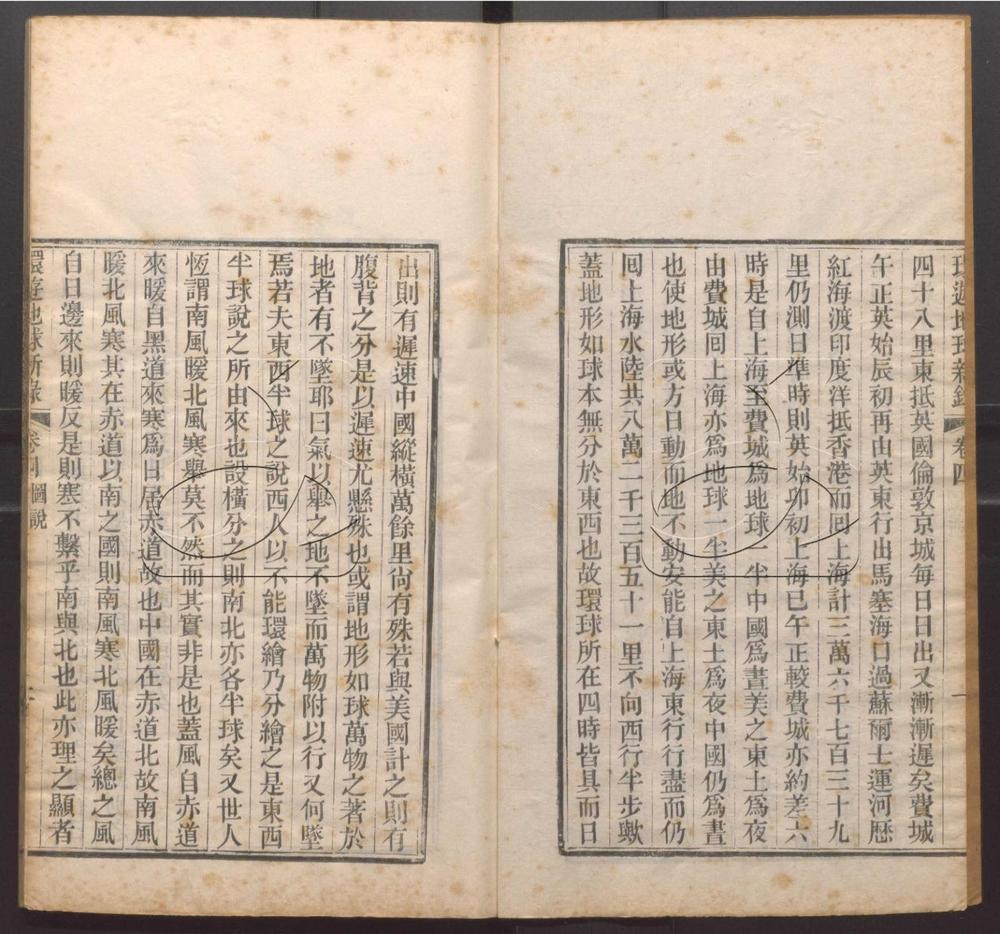 環遊地球新錄 卷四
四十八里東抵英國倫敦京城每日日出又漸漸遲矣費城
午正英始辰初再由英東行出馬塞海口過蘇爾士運河歷
紅海渡印度洋抵香港而回上海計三萬六千七百三十九
里仍測日準時則英始卯初上海已午正較費城亦約差六
時是自上海至費城爲地球一半中國爲晝美之東土爲夜
由費城回上海亦爲地球一半美之東土爲夜中國仍爲晝
也使地形或方日動而地不動安能自上海東行行盡而仍
回上海水陸共八萬二千三百五十一里不向西行半步歟
蓋地形如球本無分於東西也故環球所在四時皆具而日
出則有遲速中國縱橫萬餘里尙有殊若與美國計之則有
腹背之分是以遲速尤懸殊也或謂地形如球萬物之著於
地者有不墜耶曰氣以舉之地不墜而萬物附以行又何墜
焉若夫東西半球之說西人以不能環繪乃分繪之是東西
半球說之所由來也設橫分之則南北亦各半球矣又世人
恆謂南風暖北風寒舉莫不然而其實非是也蓋風自赤道
來暖自黑道來寒爲日居赤道故也中國在赤道北故南風
暖北風寒其在赤道以南之國則南風寒北風暖矣總之風
自日邊來則暖反是則寒不繫乎南與北也此亦理之顯者
環遊地球新錄 卷四 圖說